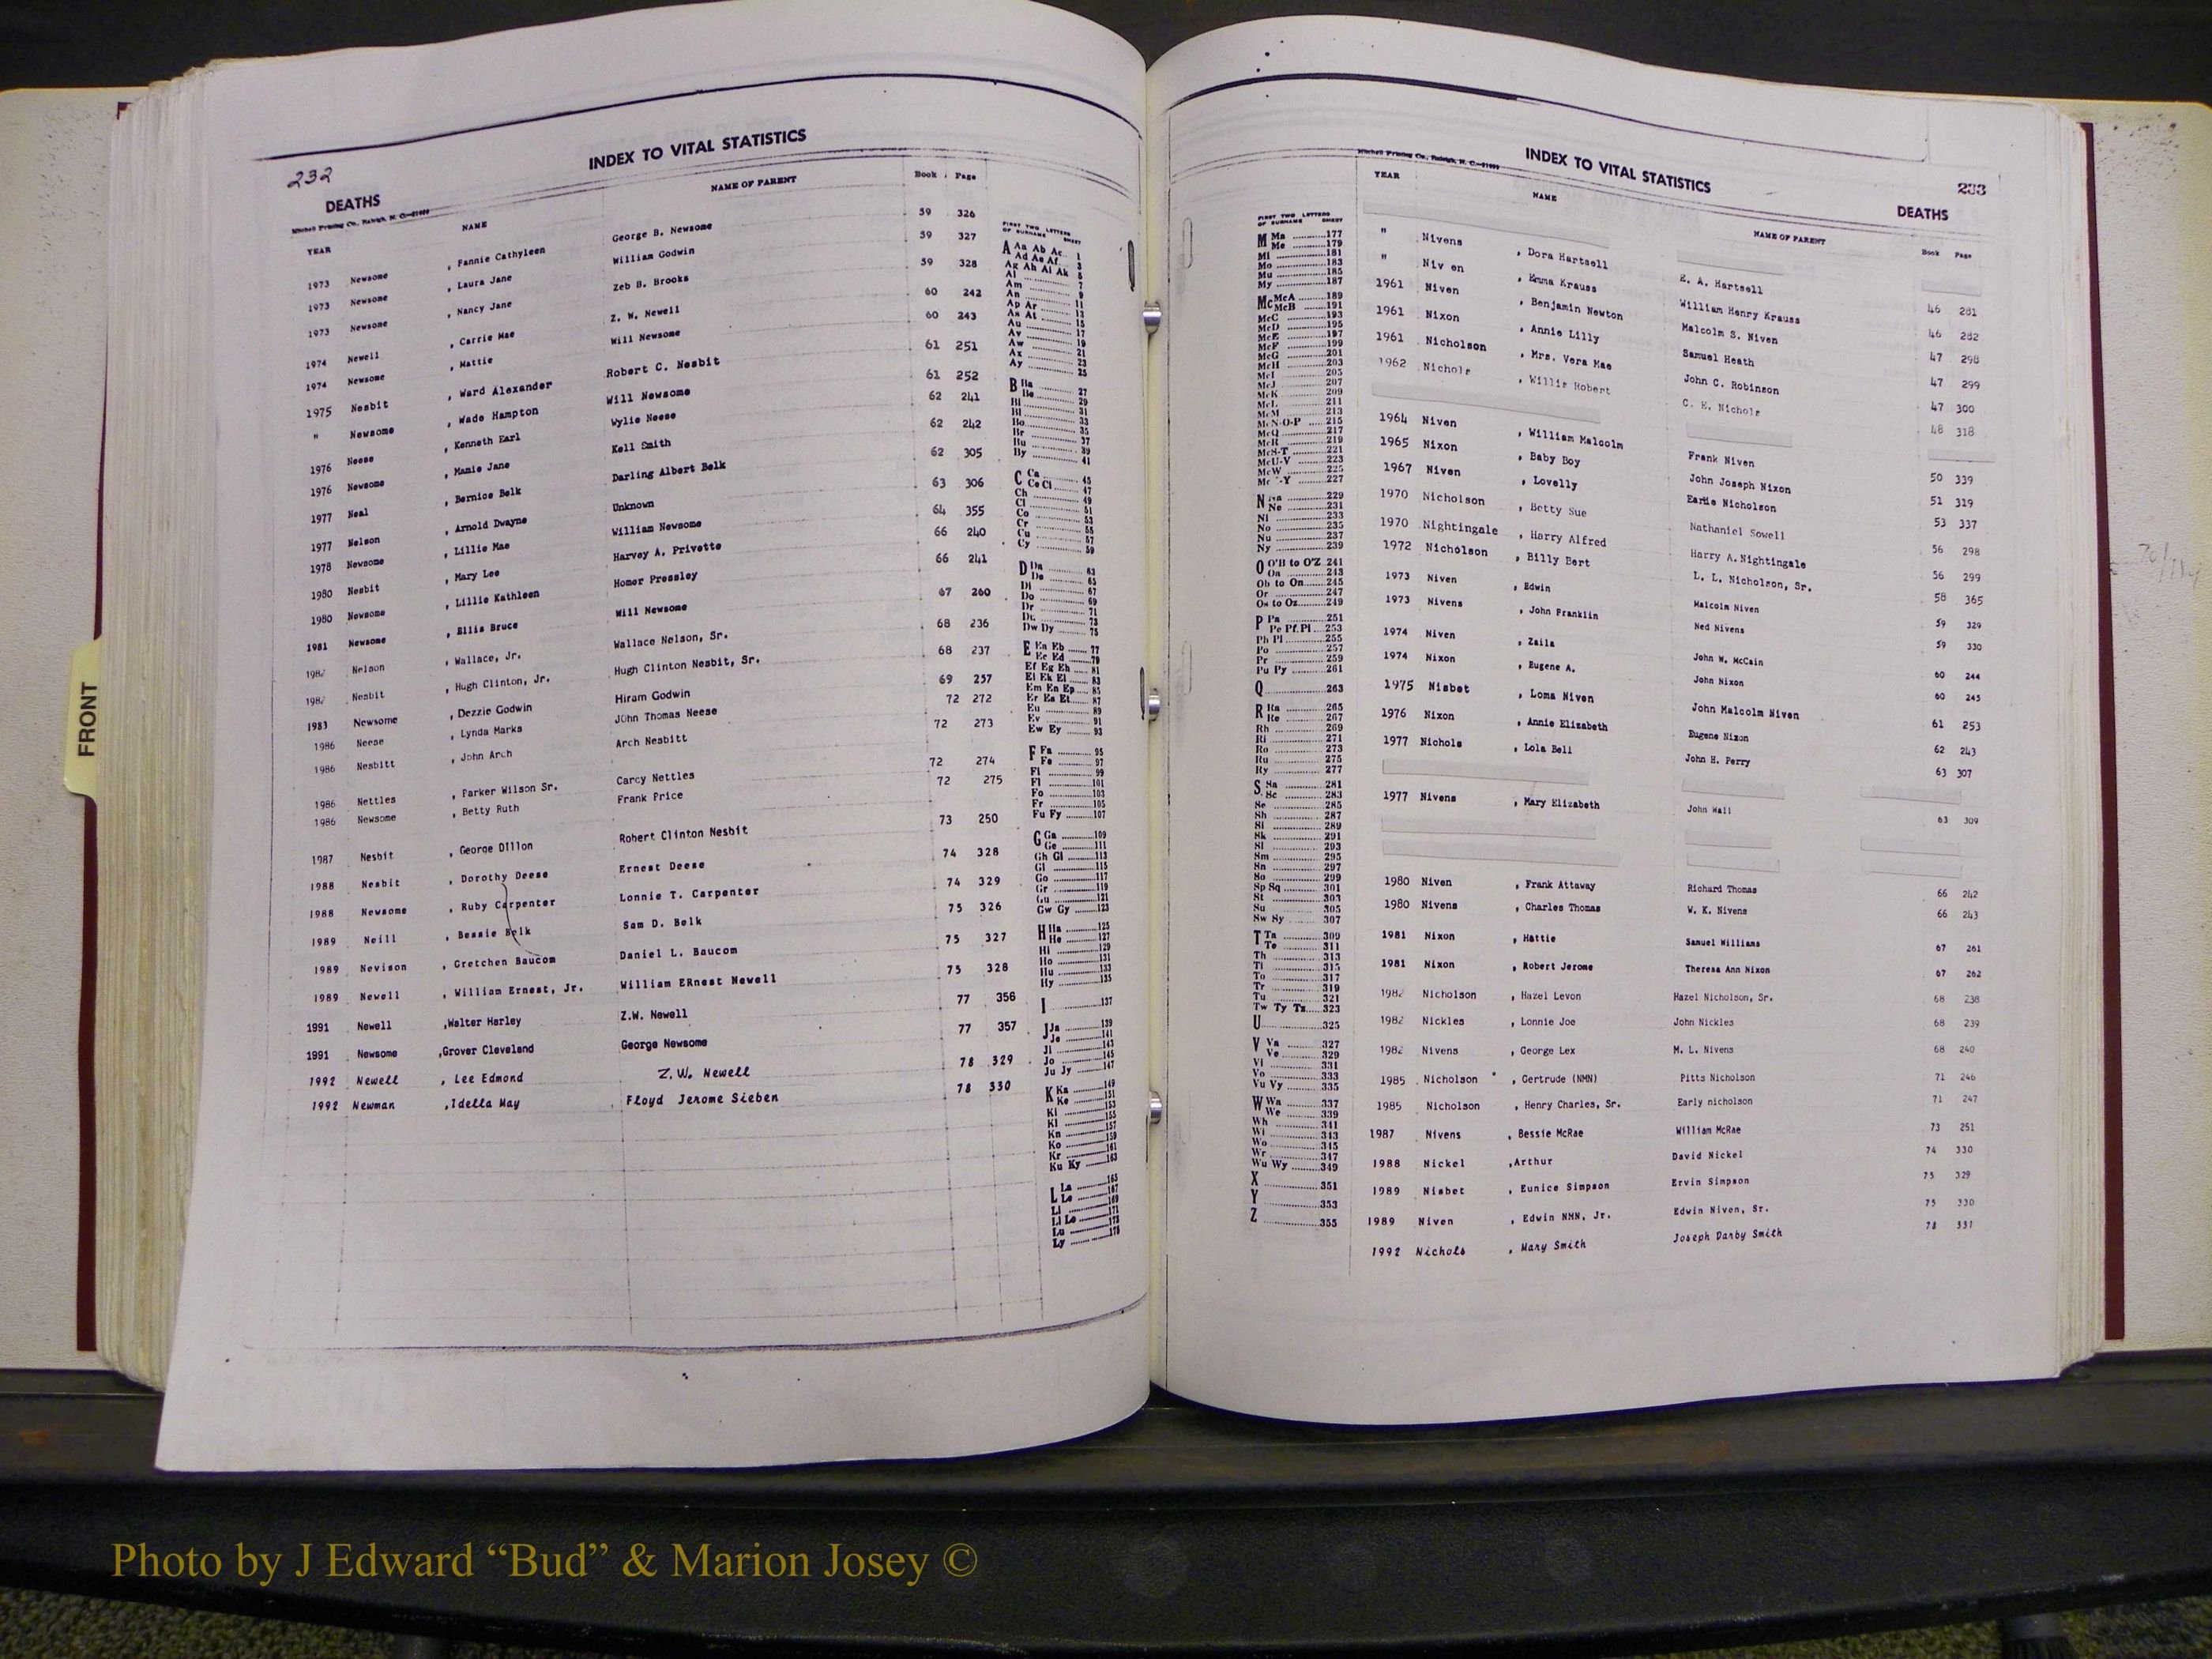 232
INDEX TO VITAL STATISTICS
DEATHS
Mitchell Printing Co., Raleigh, N. C.
YEAR NAME NAME OF PARENT Book Page
1973 Newsome , Fannie Cathyleen George B. Newsome 59 326
1973 Newsome , Laura Jane William Godwin 59 327
1973 Newsome , Nancy Jane Zeb B. Brooks 59 328
1974 Newell , Carrie Mae Z. W. Newell 60 242
1974 Newsome , Mattie Will Newsome 60 243
1975 Nesbit , Ward Alexander Robert C. Nesbit 61 251
" Newsome , Wade Hampton Will Newsome 61 252
1976 Neese , Kenneth Earl Wylie Neese 62 241
1976 Newsome , Mamie Jane Kell Smith 62 242
1977 Neal , Bernice Belk Darling Albert Belk 62 305
1977 Nelson , Arnold Dwayne Unknown 63 306
1978 Newsome , Lillie Mae William Newsome 64 355
1980 Nesbit , Mary Lee Harvey A. Privette 66 240
1980 Newsome , Lillie Kathleen Homer Pressley 66 241
1981 Newsome , Ellis Bruce Will Newsome 67 260
1982 Nelson , Wallace, Jr. Wallace Nelson, Sr. 68 236
1982 Nesbit , Hugh Clinton, Jr. Hugh Clinton Nesbit, Sr. 68 237
1983 Newsome , Dezzie Godwin Hiram Godwin 69 257
1986 Neese , Lynda Marks John Thomas Neese 72 272
1986 Nesbitt , John Arch Arch Nesbitt 72 273
1986 Nettles , Parker Wilson Sr. Carcy Nettles 72 274
1986 Newsome , Betty Ruth Frank Price 72 275
1987 Nesbit , George Dillon Robert Clinton Nesbit 73 250
1988 Nesbit , Dorothy Deese Ernest Deese 74 328
1988 Newsome , Ruby Carpenter Lonnie T. Carpenter 74 329
1989 Neill , Bessie Belk Sam D. Belk 75 326
1989 Nevison , Gretchen Baucom Daniel L. Baucom 75 327
1989 Newell , William Ernest, Jr. William ERnest Newell 75 328
1991 Newell ,Walter Harley Z.W. Newell 77 356
1991 Newsome ,Grover Cleveland George Newsome 77 357
1992 Newell , Lee Edmond Z.W. Newell 78 329
1992 Newman ,Idella May Floyd Jerome Sieben 78 330
FIRST TWO LETTERS
OF SURNAME SHEET
A Aa Ab Ac 1
Ad Ae Af 3
Ag Ah Ai Ak 5
Al 7
Am 9
An 11
Ap Ar 13
As At 15
Au 17
Av 19
Aw 21
Ax 23
Ay 25
B Ba 27
Be 29
Bi 31
Bl 33
Bo 35
Br 37
Bu 39
By 41
C Ca 45
Ce Ci 47
Ch 49
Cl 51
Co 53
Cr 55
Cu 57
Cy 59
D Da 63
De 65
Di 67
Do 69
Dr 71
Du 73
Dw Dy 75
E Ea Eb 77
Ec Ed 79
Ef Eg Eh 81
Ei Ek El 83
Em En Ep 85
Er Es Et 87
Eu 89
Ev 91
Ew Ey 93
F Fa 95
Fe 97
Fi 99
Fl 101
Fo 103
Fr 105
Fu Fy 107
G Ga 109
Ge 111
Gh Gi 113
Gl 115
Go 117
Gr 119
Gu 121
Gw Gy 123
H Ha 125
He 127
Hi 129
Ho 131
Hu 133
Hy 135
I 137
J Ja 139
Je 141
Ji 143
Jo 145
Ju Jy 147
K Ka 149
Ke 151
Ki 153
Kl 155
Kn 157
Ko 159
Kr 161
Ku Ky 163
L La 165
Le 167
Li 169
Ll Lo 171
Lu 173
Ly 175
FRONT
INDEX TO VITAL STATISTICS
233
DEATHS
Mitchell Printing Co., Raleigh, N. C.
YEAR NAME NAME OF PARENT Book Page
" Nivens , Dora Hartsell E. A. Hartsell 46 281
" Niv en , Emma Krauss William Henry Krauss 46 282
1961 Niven , Benjamin Newton Malcolm S. Niven 47 298
1961 Nixon , Annie Lilly Samuel Heath 47 299
1961 Nicholson , Mrs. Vera Mae John C. Robinson 47 300
1962 Nichols , Willis Robert C. E. Nichols 48 318
1964 Niven , William Malcolm Frank Niven 50 339
1965 Nixon , Baby Boy John Joseph Nixon 51 319
1967 Niven , Lovelly Earlie Nicholson 53 337
1970 Nicholson , Betty Sue Nathaniel Sowell 56 298
1970 Nightingale , Harry Alfred Harry A.Nightingale 56 299
1972 Nicholson , Billy Bert L. L. Nicholson, Sr. 58 365
1973 Niven , Edwin Malcolm Niven 59 329
1973 Nivens , John Franklin Ned Nivens 59 330
1974 Niven , Zaila John W. McCain 60 244
1974 Nixon , Eugene A. John Nixon 60 245
1975 Nisbet , Loma Niven John Malcolm Niven 61 253
1976 Nixon , Annie Elizabeth Eugene Nixon 62 243
1977 Nichols , Lola Bell John H. Perry 63 307
1977 Nivens , Mary Elizabeth John Wall 63 309
1980 Niven , Frank Attaway Richard Thomas 66 242
1980 Nivens , Charles Thomas W. K. Nivens 66 243
1981 Nixon , Hattie Samuel Williams 67 261
1981 Nixon , Robert Jerome Theresa Ann Nixon 67 262
1982 Nicholson , Hazel Levon Hazel Nicholson, Sr. 68 238
1982 Nickles , Lonnie Joe John Nickles 68 239
1982 Nivens , George Lex M. L. Nivens 68 240
1985 Nicholson , Gertrude (NMN) Pitts Nicholson 71 246
1985 Nicholson , Henry Charles, Sr. Early nicholson 71 247
1987 Nivens , Bessie McRae William McRae 73 251
1988 Nickel ,Arthur David Nickel 74 330
1989 Nisbet , Eunice Simpson Ervin Simpson 75 329
1989 Niven , Edwin NMN, Jr. Edwin Niven, Sr. 75 330
1992 Nichols , Mary Smith Joseph Darby Smith 78 331
FIRST TWO LETTERS
OF SURNAME SHEET
M Ma 177
Me 179
Mi 181
Mo 183
Mu 185
My 187
Mc McA 189
McB 191
McC 193
McD 195
McE 197
McF 199
McG 201
McH 203
McI 205
McJ 207
McK 209
McL 211
McM 213
McN-O-P 215
McQ 217
McR 219
McS-T 221
McU-V 223
McW 225
Mc -Y 227
N Na 229
Ne 231
Ni 233
No 235
Nu 237
Ny 239
O O'B to O'Z 241
Oa 243
Ob to On 245
Or 247
Os to Oz 249
P Pa 251
Pe Pf. Pl 253
Ph Pi 255
Po 257
Pr 259
Pu Py 261
Q 263
R Ra 265
Re 267
Rh 269
Ri 271
Ro 273
Ru 275
Ry 277
S Sa 281
Sc 283
Se 285
Sh 287
Si 289
Sk 291
Sl 293
Sm 295
Sn 297
So 299
Sp Sq 301
St 303
Su 305
Sw Sy 307
T Ta 309
Te 311
Th 313
Ti 315
To 317
Tr 319
Tu 321
Tw Ty Tz 323
U 325
V Va 327
Ve 329
Vi 331
Vo 333
Vu Vy 335
W Wa 337
We 339
Wh 341
Wi 343
Wo 345
Wr 347
Wu Wy 349
X 351
Y 353
Z 355
Photo by J Edward “Bud” & Marion Josey ©